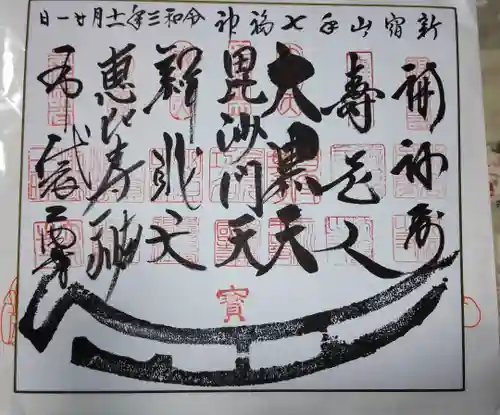 新宿山手七福神 令和三年十一月廿一日
福禄寿
寿老人
大黒天
毘沙門天
辨財天
恵比寿神
布袋尊
寳